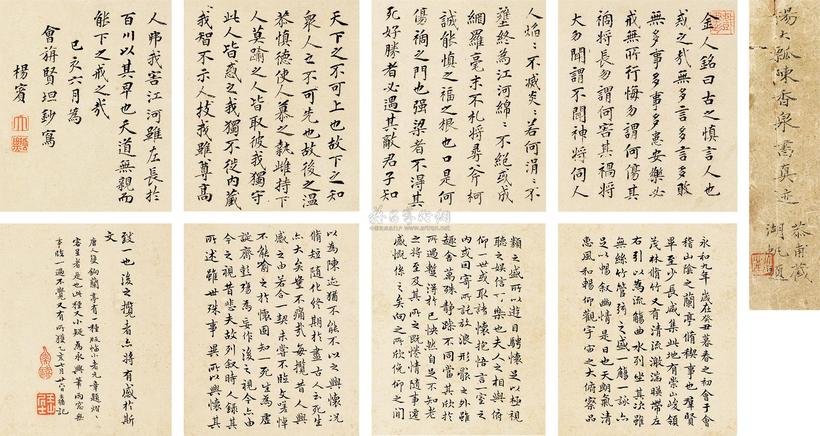 楊大瓢陳香泉書真迹
恭甫藏
湖帆題
金人銘曰古之慎言人也
戒之哉無多言多言多敗
無多事多事多患安樂必
戒無所行悔勿謂何傷其
禍將長勿謂何害其禍將
大勿聞謂不聞神將伺人
人焰焰不滅炎炎若何涓涓不
壅終為江河綿綿不絕或成
網羅毫末不札將尋斧柯
誠能慎之福之根也口是何
傷禍之門也强梁者不得其
死好勝者必遇其敵君子知
天下之不可上也故下之知
眾人之不可先也故後之溫
恭慎德使人慕之執雌持下
人莫踰之人皆取彼我獨守
此人皆惑之我獨不從內藏
我智不示人技我雖尊高
人弗我害江河雖左長於
百川以其卑也天道無親而
能下之戒之哉
己亥六月為
會旃賢坦鈔寫
楊賓
永和九年歲在癸丑暮春之初會于會
稽山陰之蘭亭脩稧事也群賢
畢至少長咸集此地有崇山峻領
茂林脩竹又有清流激湍暎帶左
右引以為流觴曲水列坐其次雖
無絲竹管弦之盛一觴一詠亦
足以暢叙幽情是日也天朗氣清
惠風和暢仰觀宇宙之大俯察品
類之盛所以遊目騁懷足以極視
聽之娛信可樂也夫人之相與俯
仰一世或取諸懷抱悟言一室之
內或因寄所託放浪形骸之外雖
趣舍萬殊靜躁不同當其欣於
所遇蹔得於己快然自足不知老
之將至及其所之既惓情隨事遷
感慨係之矣向之所欣俛仰之間
以為陳迹猶不能不以之興懷況
脩短隨化終期於盡古人云死生
亦大矣豈不痛哉每攬昔人興
感之由若合一契未嘗不臨文嗟悼
不能喻之於懷固知一死生為虛
誕齊彭殤為妄作後之視今亦由
今之視昔悲夫故列叙時人錄其
所述雖世殊事異所以興懷其
致一也後之攬者亦將有感於斯
文